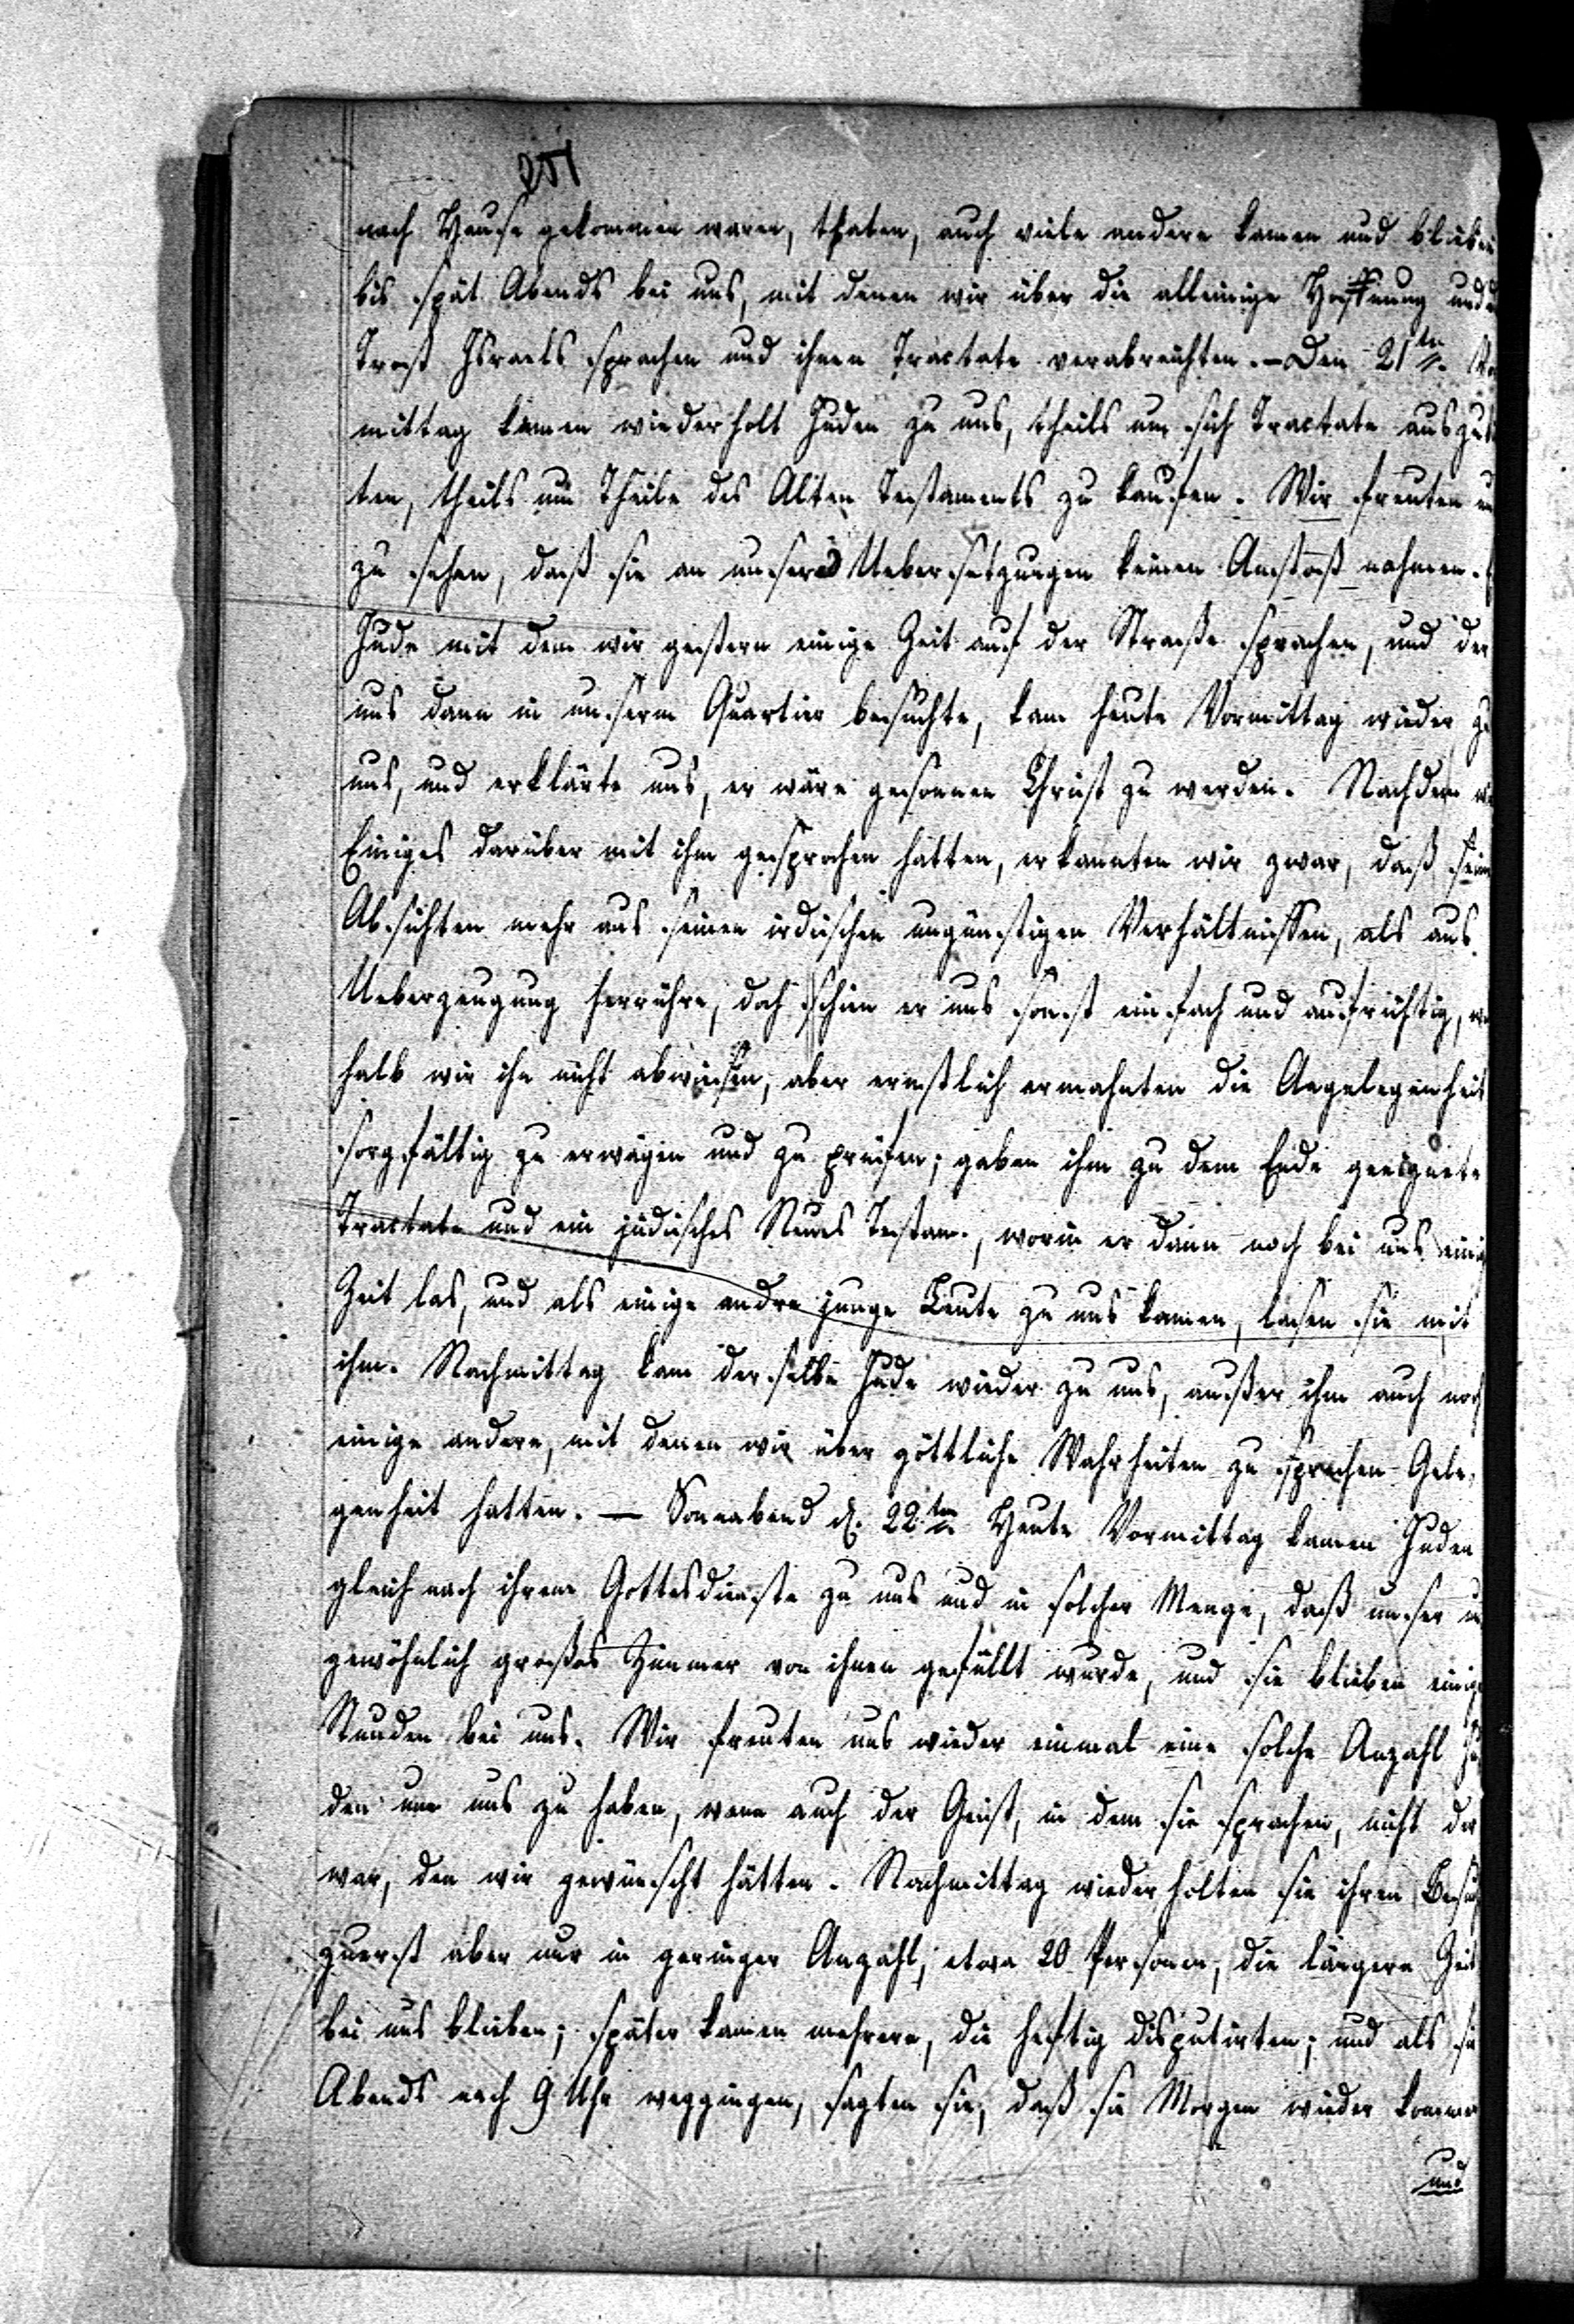 251
nach Hause gekommen waren, thaten, auch viele andere kamen und blieben
bis spät Abends bei uns, mit denen wir über die alleinige Hoffnung und
Trost Israels sprachen und ihnen Tractate verabreichten. – Den 21ten Vor
mittag kamen wiederholt Juden zu uns, theils um sich Tractate auszubit
ten, theils um Theile des Alten Testaments zu kaufen. Wir freuten uns
zu sehen, daß sie an unsern Uebersetzungen keinen Anstoß nahmen.
Jude mit dem wir gestern einige Zeit auf der Straße sprachen, und der
uns dann in unserm Quartier besuchte, kam heute Vormittag wieder zu
uns, und erklärte uns, er wäre gesonnen Christ zu werden. Nachdem wir
Einiges darüber mit ihm gesprochen hatten, erkannten wir zwar, daß seine
Absichten mehr aus seinen irdischen ungünstigen Verhältnissen, als aus
Ueberzeugung herrühre, doch schien er uns sonst einfach und aufrichtig, wes
halb wir ihn nicht abwiesen, aber ernstlich ermahnten die Angelegenheit
sorgfältig zu erwägen und zu prüfen; gaben ihm zu dem Ende geeignete
Tractate und ein jüdisches Neues Testam., worin er dann noch bei uns einige
Zeit las, und als einige andre junge Leute zu uns kamen, lasen sie mit
ihm. Nachmittag kam derselbe Jude wieder zu uns, außer ihm auch noch
einige andere, mit denen wir über göttliche Wahrheiten zu sprechen Gele-
genheit hatten. — Sonnabend d. 22ten Heute Vormittag kamen Juden
gleich nach ihrem Gottesdienste zu uns und in solcher Menge, daß unser un
gewöhnlich großes Zimmer von ihnen gefüllt wurde, und sie blieben einige
Stunden bei uns. Wir freuten uns wieder einmal eine solche Anzahl Ju
den um uns zu haben, wenn auch der Geist, in dem sie sprachen, nicht der
war, den wir gewünscht hätten. Nachmittag wiederholten sie ihren Besuch
zuerst aber nur in geringer Anzahl, etwa 20 Personen, die längere Zeit
bei uns blieben; später kamen mehrere, die heftig disputirten; und als sie
Abends nach 9 Uhr weggingen, sagten sie, daß sie Morgen wieder kommen
und